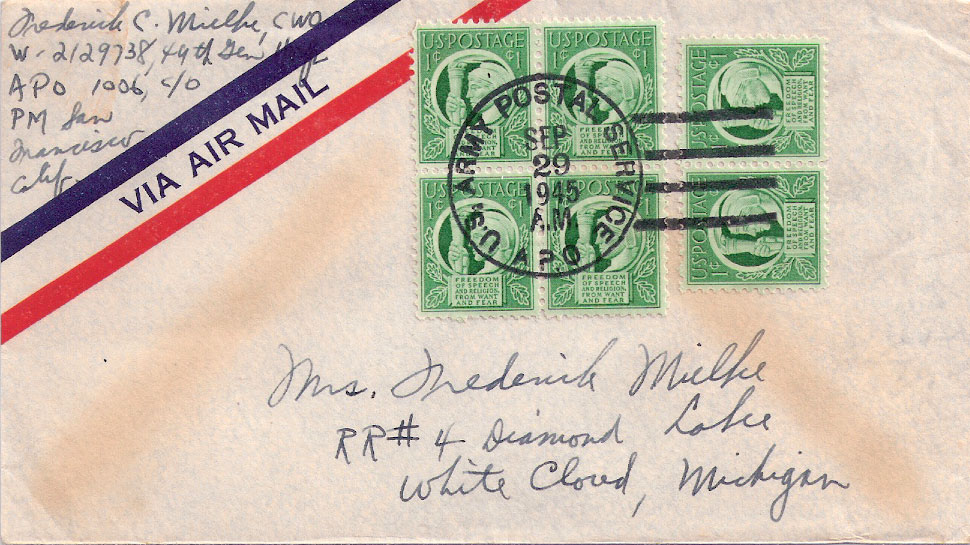 Frederick C. Mielke, CWO
W-2129738, 49th Gen Hosp
APO 1006, c/o
PM San
Francisco
Calif
VIA AIR MAIL
U.S. POSTAGE
1¢ ¢1
FREEDOM
OF SPEECH
AND RELIGION,
FROM WANT
AND FEAR
U.S. POSTAGE
1¢ ¢1
FREEDOM
OF SPEECH
AND RELIGION,
FROM WANT
AND FEAR
U.S. POSTAGE
1¢ ¢1
FREEDOM
OF SPEECH
AND RELIGION,
FROM WANT
AND FEAR
U.S. POSTAGE
1¢ ¢1
FREEDOM
OF SPEECH
AND RELIGION,
FROM WANT
AND FEAR
U.S. POSTAGE
1¢ ¢1
FREEDOM
OF SPEECH
AND RELIGION,
FROM WANT
AND FEAR
U.S. POSTAGE
1¢ ¢1
FREEDOM
OF SPEECH
AND RELIGION,
FROM WANT
AND FEAR
U.S. ARMY POSTAL SERVICE
SEP
29
1945
A.M.
APO
Mrs. Frederick Mielke
RR# 4 Diamond Lake
White Cloud, Michigan